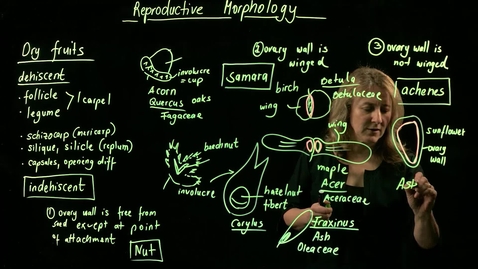 Reproductive Morphology
Dry fruits
dehiscent
• follicle
• legume
> 1 carpel
• schizocarp (mericarp)
• silique, silicle (replum)
• capsules, opening diff
indehiscent
① ovary wall is free from
seed except at point
of attachment
Nut
involucre
= cup
Acorn
Quercus oaks
Fagaceae
beechnut
involucre
hazelnut
filbert
Corylus
② ovary wall is
winged
samara
birch
wing
Betula
Betulaceae
wing
maple
Acer
Aceraceae
Fraxinus
Ash
Oleaceae
③ ovary wall is
not winged
achenes
sunflower
ovary
wall
Ast